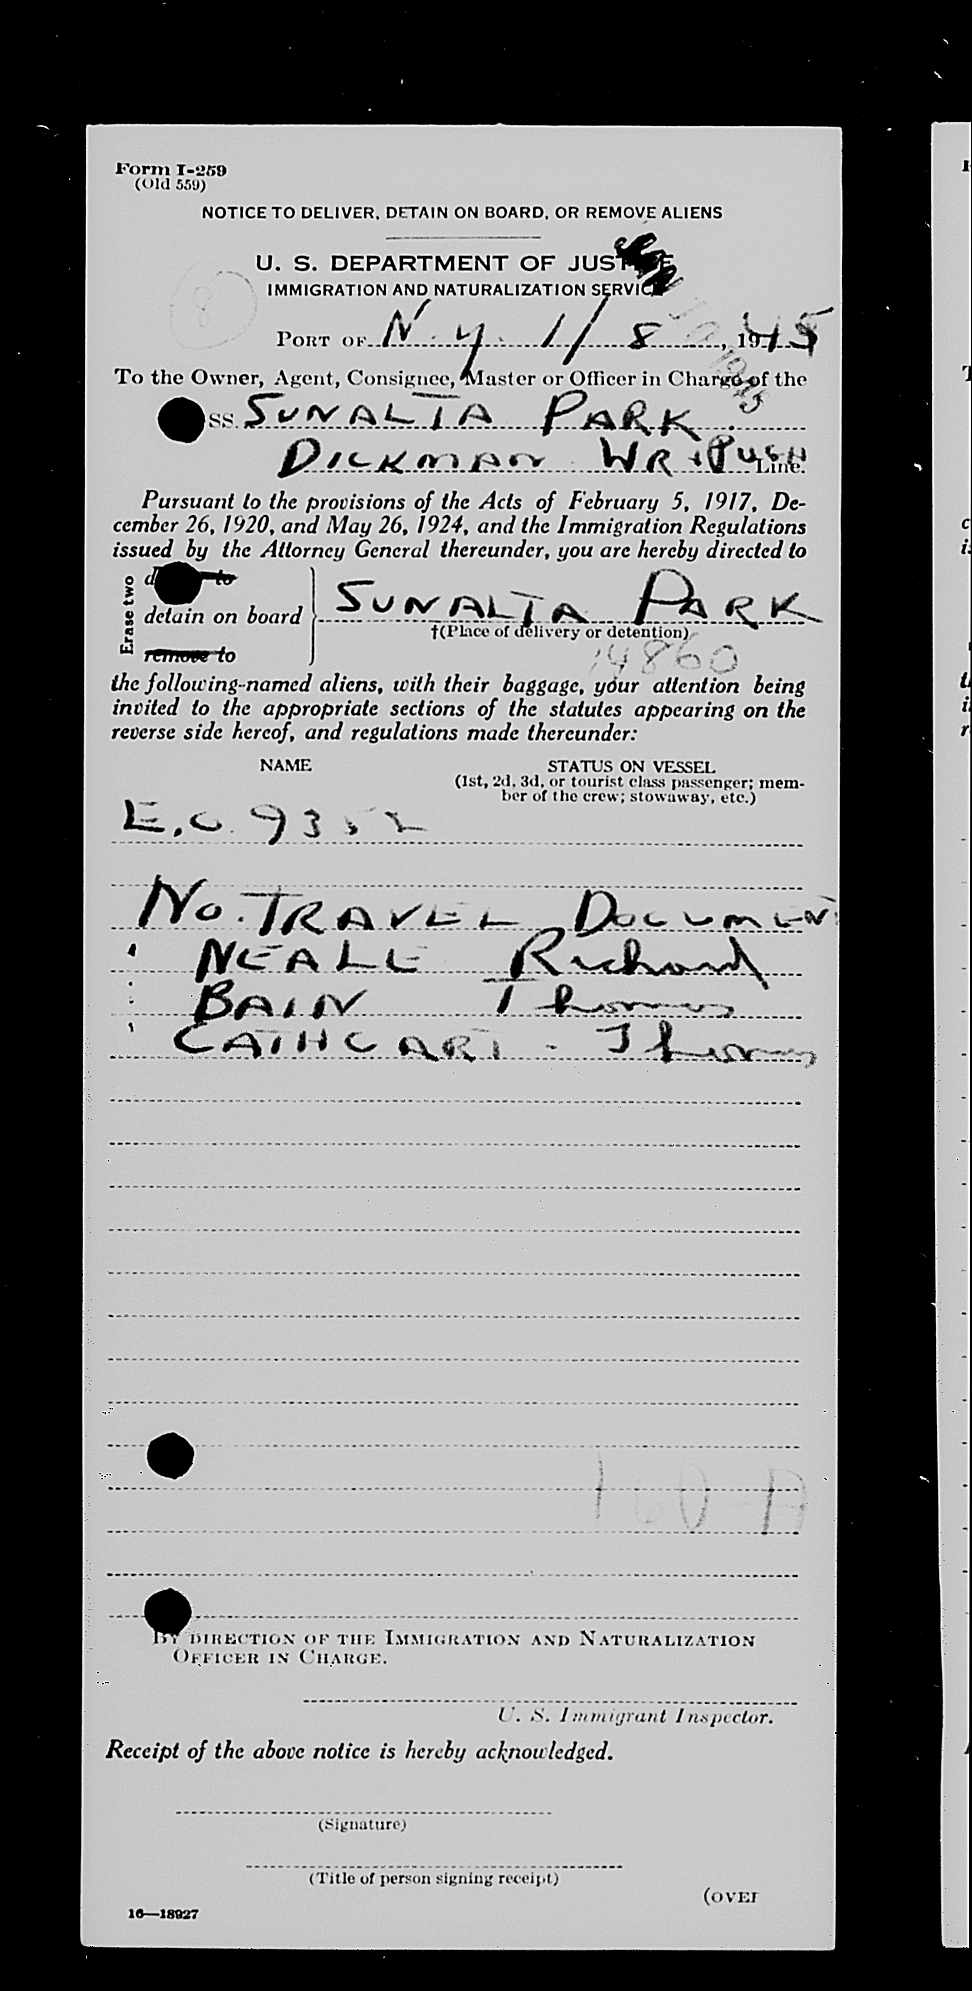 Form I-259
(Old 559)
NOTICE TO DELIVER, DETAIN ON BOARD, OR REMOVE ALIENS
U. S. DEPARTMENT OF JUSTICE
IMMIGRATION AND NATURALIZATION SERVICE
8
PORT OF N.Y. 1/8, 1945
To the Owner, Agent, Consignee, Master or Officer in Charge of the
SS. SUNALTA PARK
DICKMAN Line.
Pursuant to the provisions of the Acts of February 5, 1917, De-
cember 26, 1920, and May 26, 1924, and the Immigration Regulations
issued by the Attorney General thereunder, you are hereby directed to
Erase two
to
detain on board SUNALTA PARK
†(Place of delivery or detention)
remove to
14860
the following-named aliens, with their baggage, your attention being
invited to the appropriate sections of the statutes appearing on the
reverse side hereof, and regulations made thereunder:
NAME STATUS ON VESSEL
(1st, 2d, 3d, or tourist class passenger; mem-
ber of the crew; stowaway, etc.)
E.C. 9352
NO. TRAVEL DOCUMEN
NEALE Richard
BAIN Thomas
CATHCART - Thomas
160-A
BY DIRECTION OF THE IMMIGRATION AND NATURALIZATION
OFFICER IN CHARGE.
U. S. Immigrant Inspector.
Receipt of the above notice is hereby acknowledged.
(Signature)
(Title of person signing receipt)
(OVER
16—18927